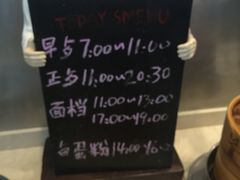 TODAY'S MENU
早点7:00~11:00
正点11:00~20:30
面档11:00~13:00
17:00~19:00
白蛋粉14:00~16:00